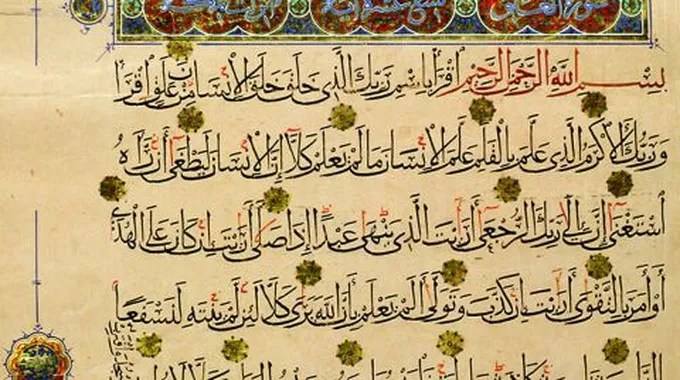 سورة العلق
بسم الله الرحمن الرحيم اقرا باسم ربك الذى خلق خلق الانسان من علق اقرا
وربك الاكرم الذى علم بالقلم علم الانسان ما لم يعلم كلا ان الانسان ليطغى ان راه
استغنى ان الى ربك الرجعى ارايت الذى ينهى عبدا اذا صلى ارايت ان كان على الهدى
او امر بالتقوى ارايت ان كذب وتولى الم يعلم بان الله يرى كلا لئن لم ينته لنسفعا